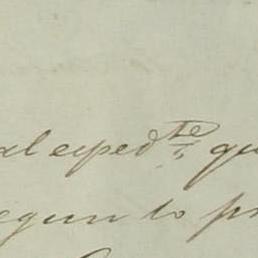 al exped.te qu
egun lo pr